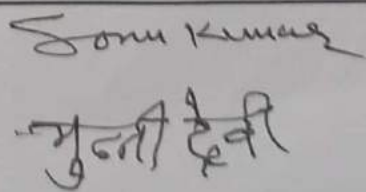 Sonu Kumar
मुन्नी देवी